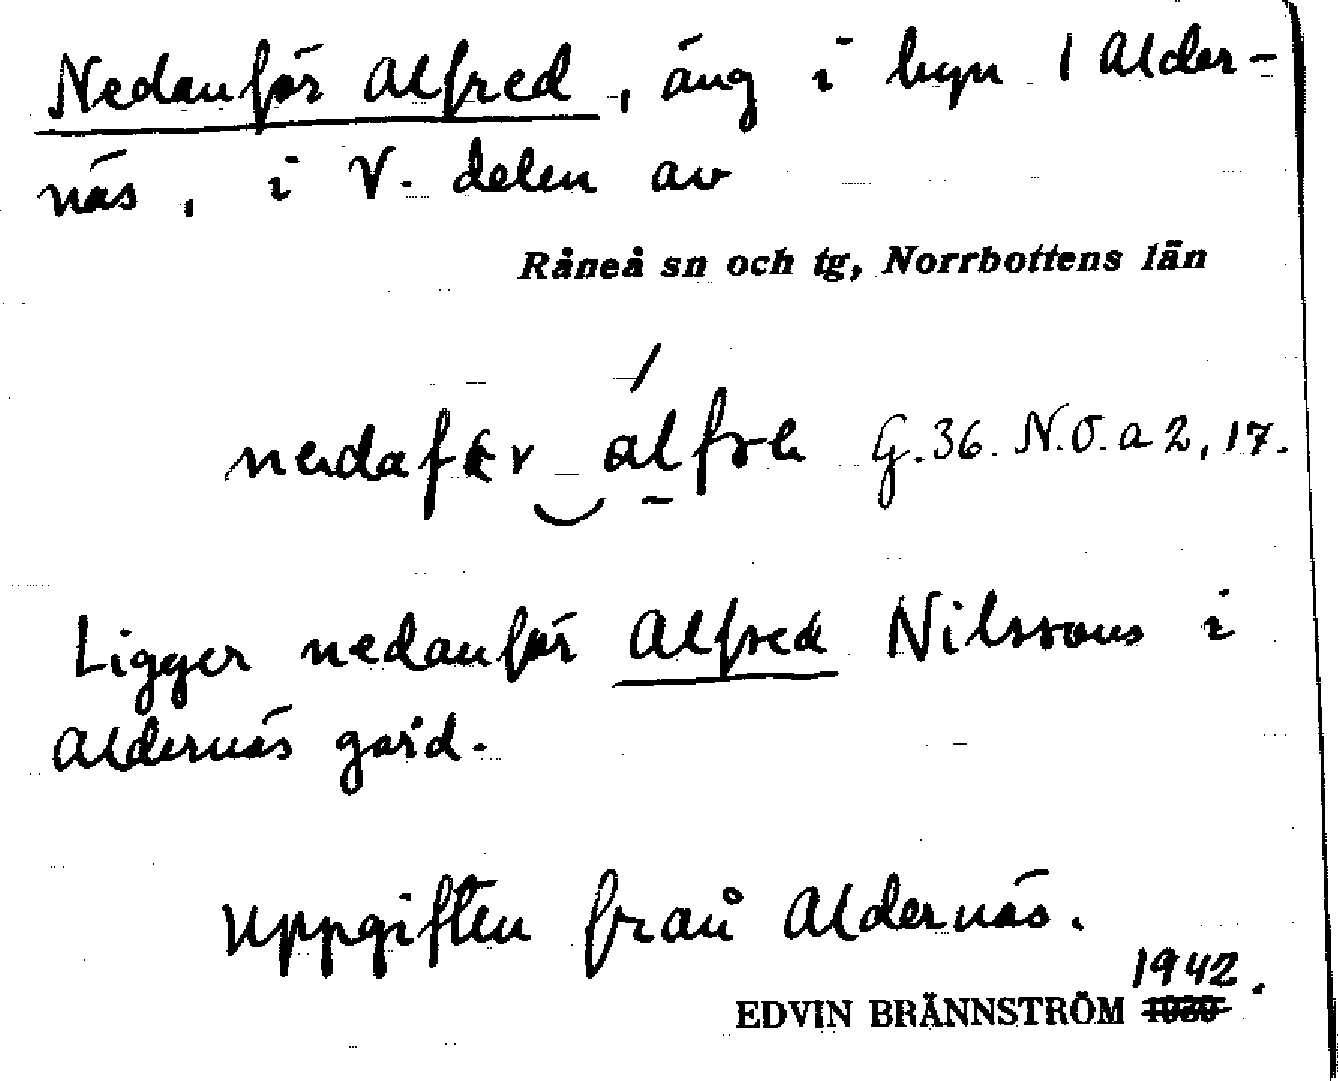 Nedanför Alfred, äng i byn 1 Alder-
näs, i V. delen av
Råneå sn och tg, Norrbottens län
G. 36. N.O. a 2, 17.
Ligger nedanför Alfred Nilssons i
Aldernäs gård.
Uppgiften från Aldernäs.
1942.
EDVIN BRÄNNSTRÖM 1939